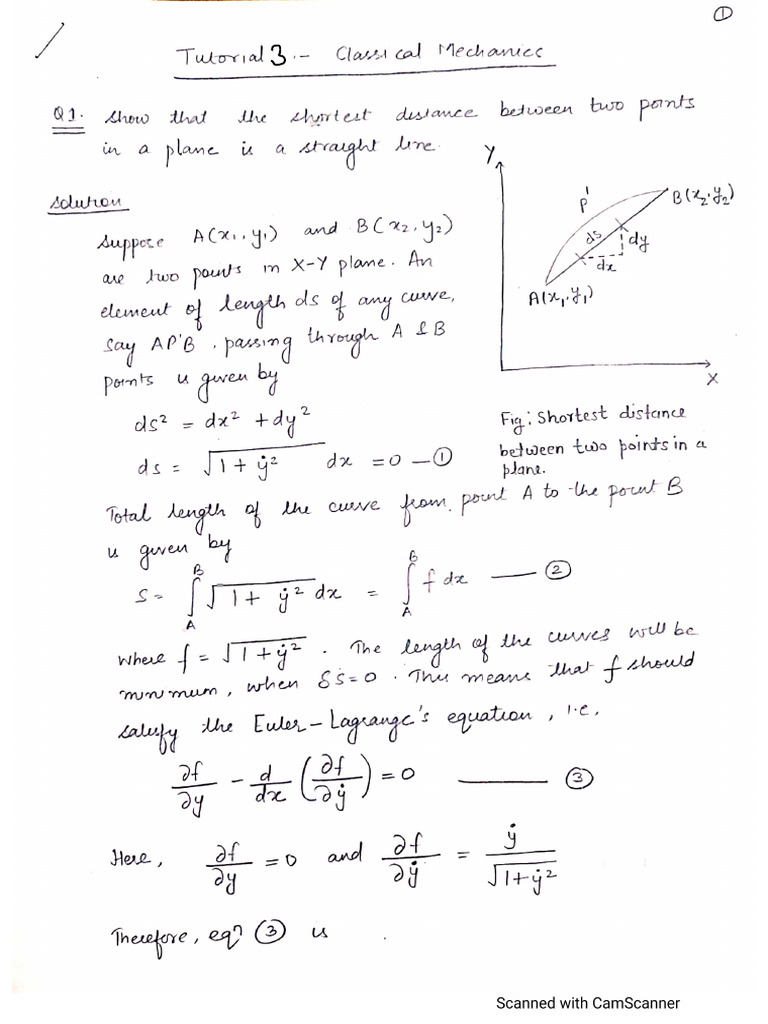 ①
Tutorial 3 :- Classical Mechanics
Q1. Show that the shortest distance between two points
in a plane is a straight line.
Solution
Suppose A(x₁, y₁) and B(x₂, y₂)
are two points in X-Y plane. An
element of length ds of any curve,
say AP'B, passing through A & B
points is given by
ds² = dx² + dy²
ds = √(1 + ẏ²) dx = 0 — ①
Y
P'
B(x₂, y₂)
ds
dy
dx
A(x₁, y₁)
X
Fig: Shortest distance
between two points in a
plane.
Total length of the curve from point A to the point B
is given by
S = ∫_A^B √(1 + ẏ²) dx = ∫_A^B f dx — ②
where f = √(1 + ẏ²). The length of the curves will be
minimum, when δS = 0. This means that f should
satisfy the Euler-Lagrange's equation, i.e.
∂f/∂y - d/dx (∂f/∂ẏ) = 0 — ③
Here, ∂f/∂y = 0 and ∂f/∂ẏ = ẏ/√(1 + ẏ²)
Therefore, eqⁿ ③ is
Scanned with CamScanner